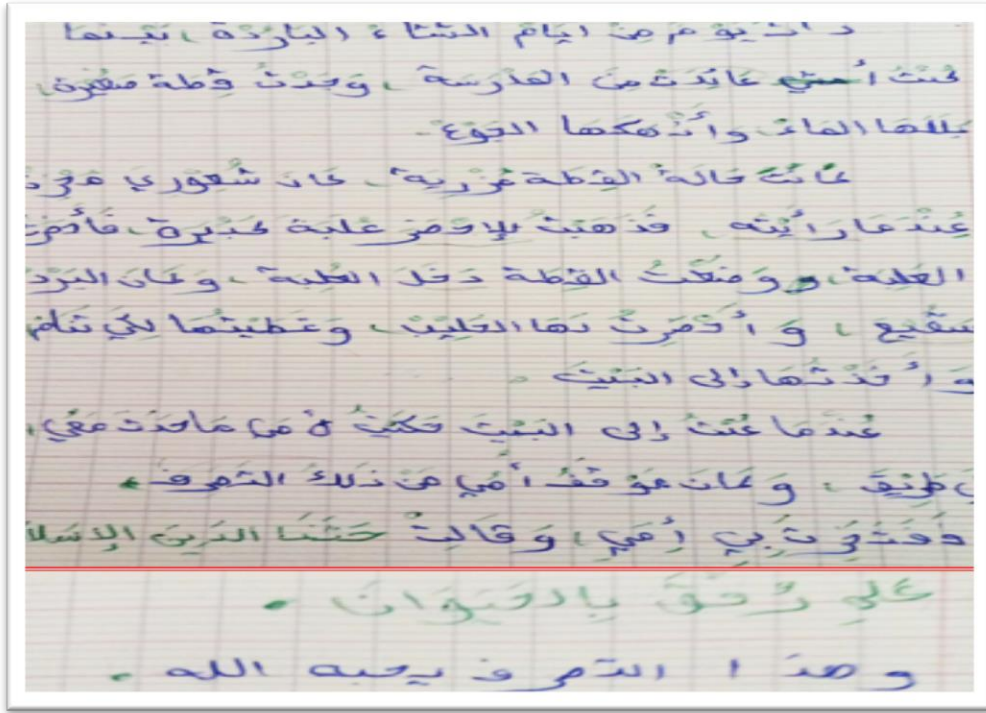 ذات يوم من أيام الشتاء الباردة، بينما
كنت أمشي عائدت من المدرسة، وجدت قطة صغيرة،
بللها الماء وأنهكها الجوع.
كانت حالة القطة مزرية، كان شعوري
عندما رأيته، فذهبت لإحضر علبة كبيرة،
العلبة، ووضعت القطة دخل العلبة، وكان البرد
سقيع، و أحضرت لها الحليب، وغطيتها لكي تنام
و أخذتها إلى البيت.
عندما عدت إلى البيت حكيت لأمي ماحدث معي،
وكان موقف أمي من ذلك التصرف.
بي إمي، وقالت حثنا الدين
على رحق بالحيوان.
وهذا التصرف يحبه الله.